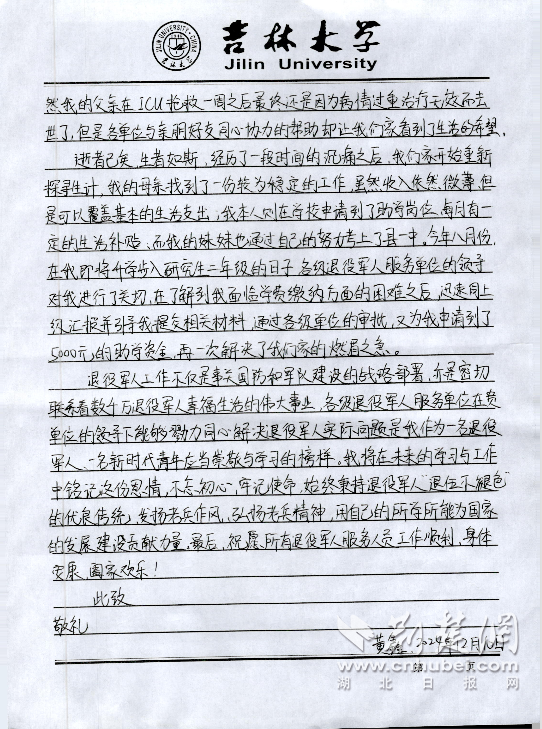 JILIN UNIVERSITY·CHINA
吉林大学
吉林大学
Jilin University
然我的父亲在ICU抢救一周之后最终还是因为病情过重治疗无效而去
世了,但是各单位与亲朋好友同心协力的帮助却让我们家看到了生活的希望。
逝者已矣,生者如斯,经历了一段时间的沉痛之后,我们家开始重新
探寻生计,我的母亲找到了一份较为稳定的工作,虽然收入依然微薄,但
是可以覆盖基本的生活支出;我本人则在学校申请到了助学岗位,每月有一
定的生活补贴、而我的妹妹也通过自己的努力考上了县一中。今年八月份,
在我即将升学步入研究生二年级的日子,各级退役军人服务单位的领导
对我进行了关切,在了解到我面临学费缴纳方面的困难之后,迅速向上
级汇报并引导我提交相关材料,通过各级单位的审批,又为我申请到了
5000元的助学资金,再一次解决了我们家的燃眉之急。
退役军人工作不仅是事关国防和军队建设的战略部署,亦是密切
联系着数千万退役军人幸福生活的伟大事业,各级退役军人服务单位在贵
单位的领导下能够勠力同心解决退役军人实际问题是我作为一名退役
军人、一名新时代青年应当崇敬与学习的榜样。我将在未来的学习与工作
中铭记这份恩情,不忘初心,牢记使命,始终秉持退役军人“退伍不褪色”
的优良传统,发扬老兵作风,弘扬老兵精神,用自己的所学所能为国家
的发展建设贡献力量。最后,祝愿所有退役军人服务人员工作顺利,身体
安康,阖家欢乐!
此致
敬礼
2024年2月
第 页
荆楚网
www.cnhubei.com
湖北日报网